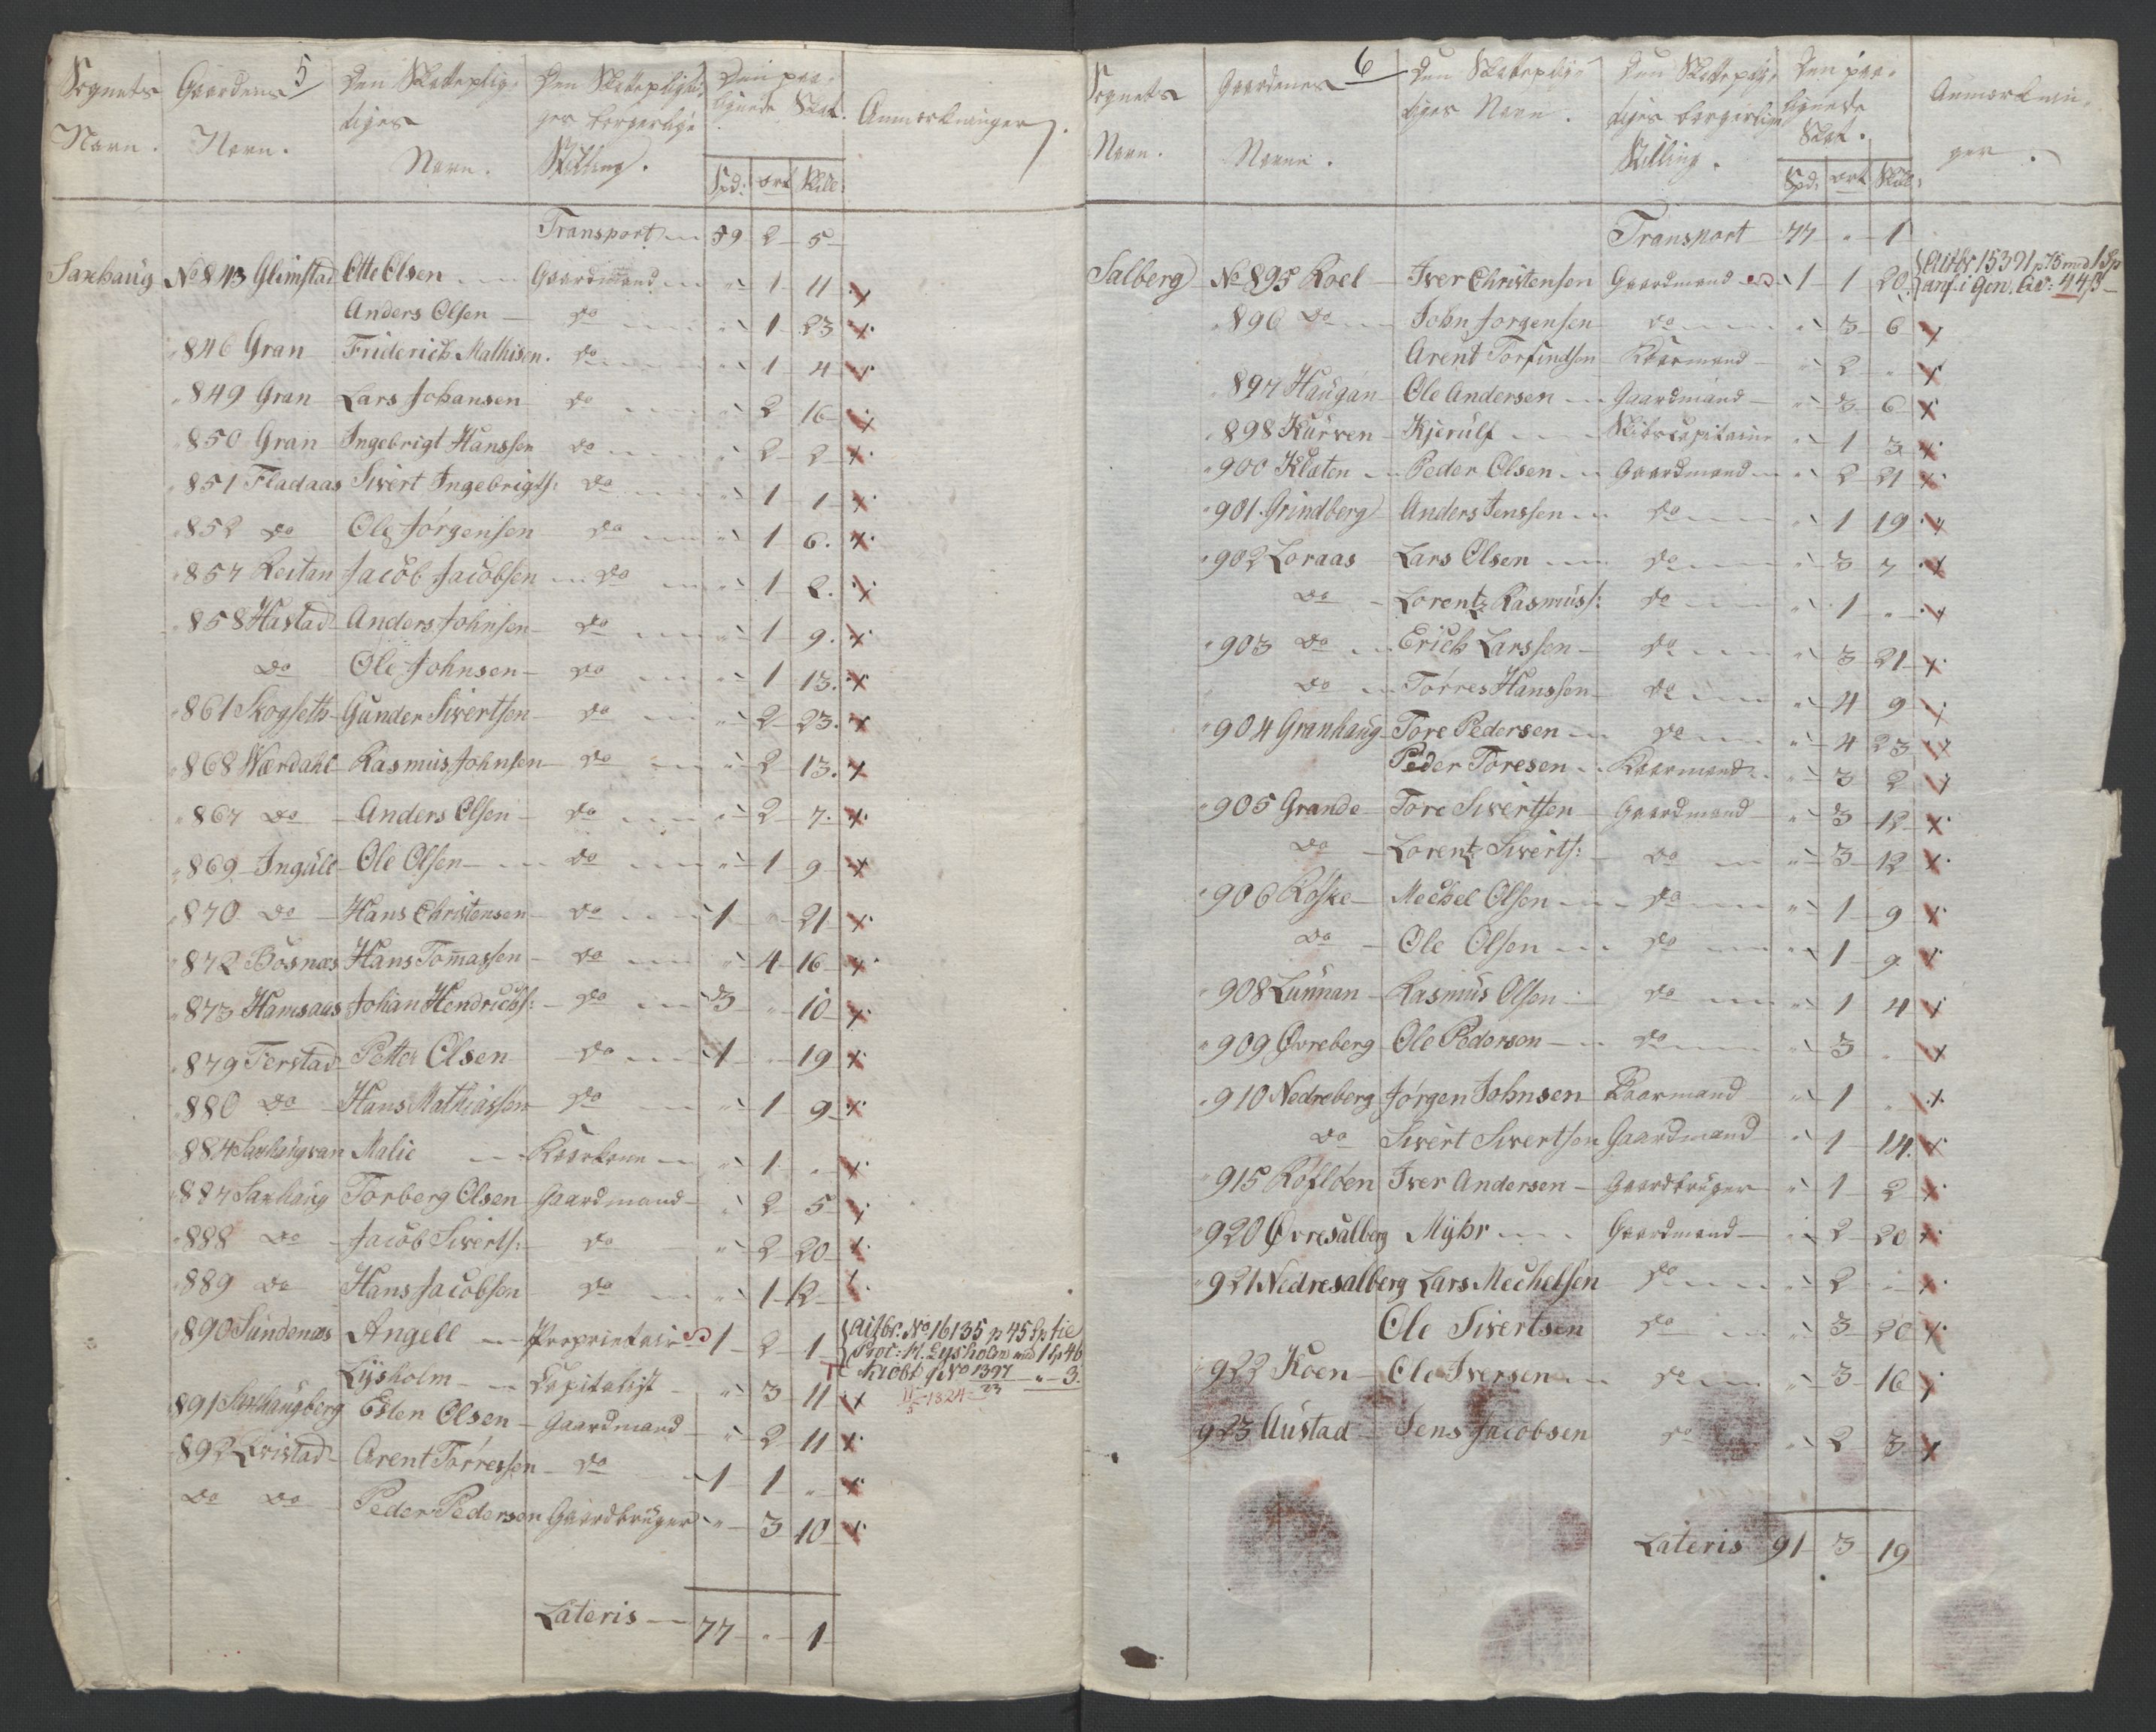 5
Sognets Navn. Gaardens Navn. Den Skatteplig- tiges Navn. Den Skattepligti- ges borgerlige Stilling. Den paa- lignede Skat. Anmærkninger.
Spd: ort Skill:
Transport 59 2 5
Saxhaug No 843 Glimstad Otte Olsen Gaardmand " 1 11 x
Anders Olsen do " 1 23 x
" 846 Gran Friderich Mathisen. do " 1 4 x
" 849 Gran Lars Johansen do " 2 16 x
" 850 Gran Ingebrigt Hanssen do " 2 2 x
" 851 Fladaas Sivert Ingebrigts: do " 1 1 x
" 852 do Ole Jörgensen do " 1 6. x
" 857 Reitan Jacob Jacobsen do " 1 2. x
" 858 Hastad Anders Johnsen do " 1 9. x
do Ole Johnsen do " 1 13. x
" 861 Skogseth Gunder Sivertsen do " 2 23. x
" 868 Wærdahl Rasmus Johnsen do " 2 13. x
" 867 do Anders Olsen do " 2 7. x
" 869 Ingull Ole Olsen do " 1 9 x
" 870 do Hans Christensen do 1 " 21 x
" 872 Bosnæs Hans Tomassen do " 4 16 x
" 873 Hamsaas Johan Hendrichs: do 3 " 10 x
" 879 Ferstad Petter Olsen do 1 " 19 x
" 880 do Hans Mathiassen do " 1 9 x
" 884 Saxhaugvan Malie Kaarkone " 1 " x
" 887 Saxhaug Torberg Olsen Gaardmand " 2 5 x
" 888 do Jacob Siverts: do " 2 20 x
" 889 do Hans Jacobsen do " 1 12
" 890 Sundenæs Angell Proprietair 1 2 1 Qitbr. No 16135 p 45 Sp til
Proc: N. Lysholm med 1 Sp 46
Lysholm Capitalist " 3 11 x No 1397 " 3.
1824
891 Saxhaugberg Esten Olsen Gaardmand " 2 11 x
892 Qvistad Arent Törressen do 1 1 " x
do do Peder Pedersen Gaardbruger " 3 10 x
Lateris 77 " 1
6
Sognets Navn. Gaardenes Navne. Den Skatteplig- tiges Navn. Den Skatteplig- tiges borgerlige Stilling. Den paa- lignede Skat. Anmærknin- ger.
Spd: ort Skill:
Transport 77 " 1
Salberg No 895 Roel Iver Christensen Gaardmand 1 1 20 Qitbr 15391 p 75 med 1 Sp
anf i Gen. Qv: 44 β
" 896 do John Jorgensen do " 3 6 x
Arent Torfindsen Kaarmand " 2 " x
" 897 Haugan Ole Andersen Gaardmand " 3 6 x
" 898 Kurven Kjerulf Skibscapitaine " 1 3 x
" 900 Klæten Peder Olsen Gaardmand " 2 21 x
" 901 Grindberg Anders Jenssen do " 1 19 x
" 902 Loraas Lars Olsen do " 3 7 x
do Lorentz Rasmuss: do " 1 " x
" 903 do Erich Larssen do " 3 21 x
do Törres Hanssen do " 4 9 x
" 904 Granhaug Tore Pedersen do " 4 23 x
Peder Toresen Kaarmand " 3 2 x
" 905 Grande Tore Sivertsen Gaardmand " 3 12 x
do Lorentz Siverts: do " 3 12 x
" 906 Röske Mechel Olsen do " 1 9 x
do Ole Olsen do " 1 9 x
" 908 Lunnan Rasmus Olsen do " 1 4 x
" 909 Övreberg Ole Pederson do " 3 " x
" 910 Nedreberg Jörgen Johnsen Kaarmand " 1 " x
do Sivert Sivertsen Gaardmand " 1 14. x
" 915 Rofloen Iver Andersen Gaardbruger " 1 2 x
" 920 Övresalberg Myhr Gaardmand " 2 20 x
" 921 Nedresalberg Lars Mechelsen do " 2 " x
Ole Sivertsen do " 3 20 x
" 922 Koen Ole Iversen do " 3 16 x
923 Austad Jens Jacobsen do " 2 3 x
Lateris 91 3 19